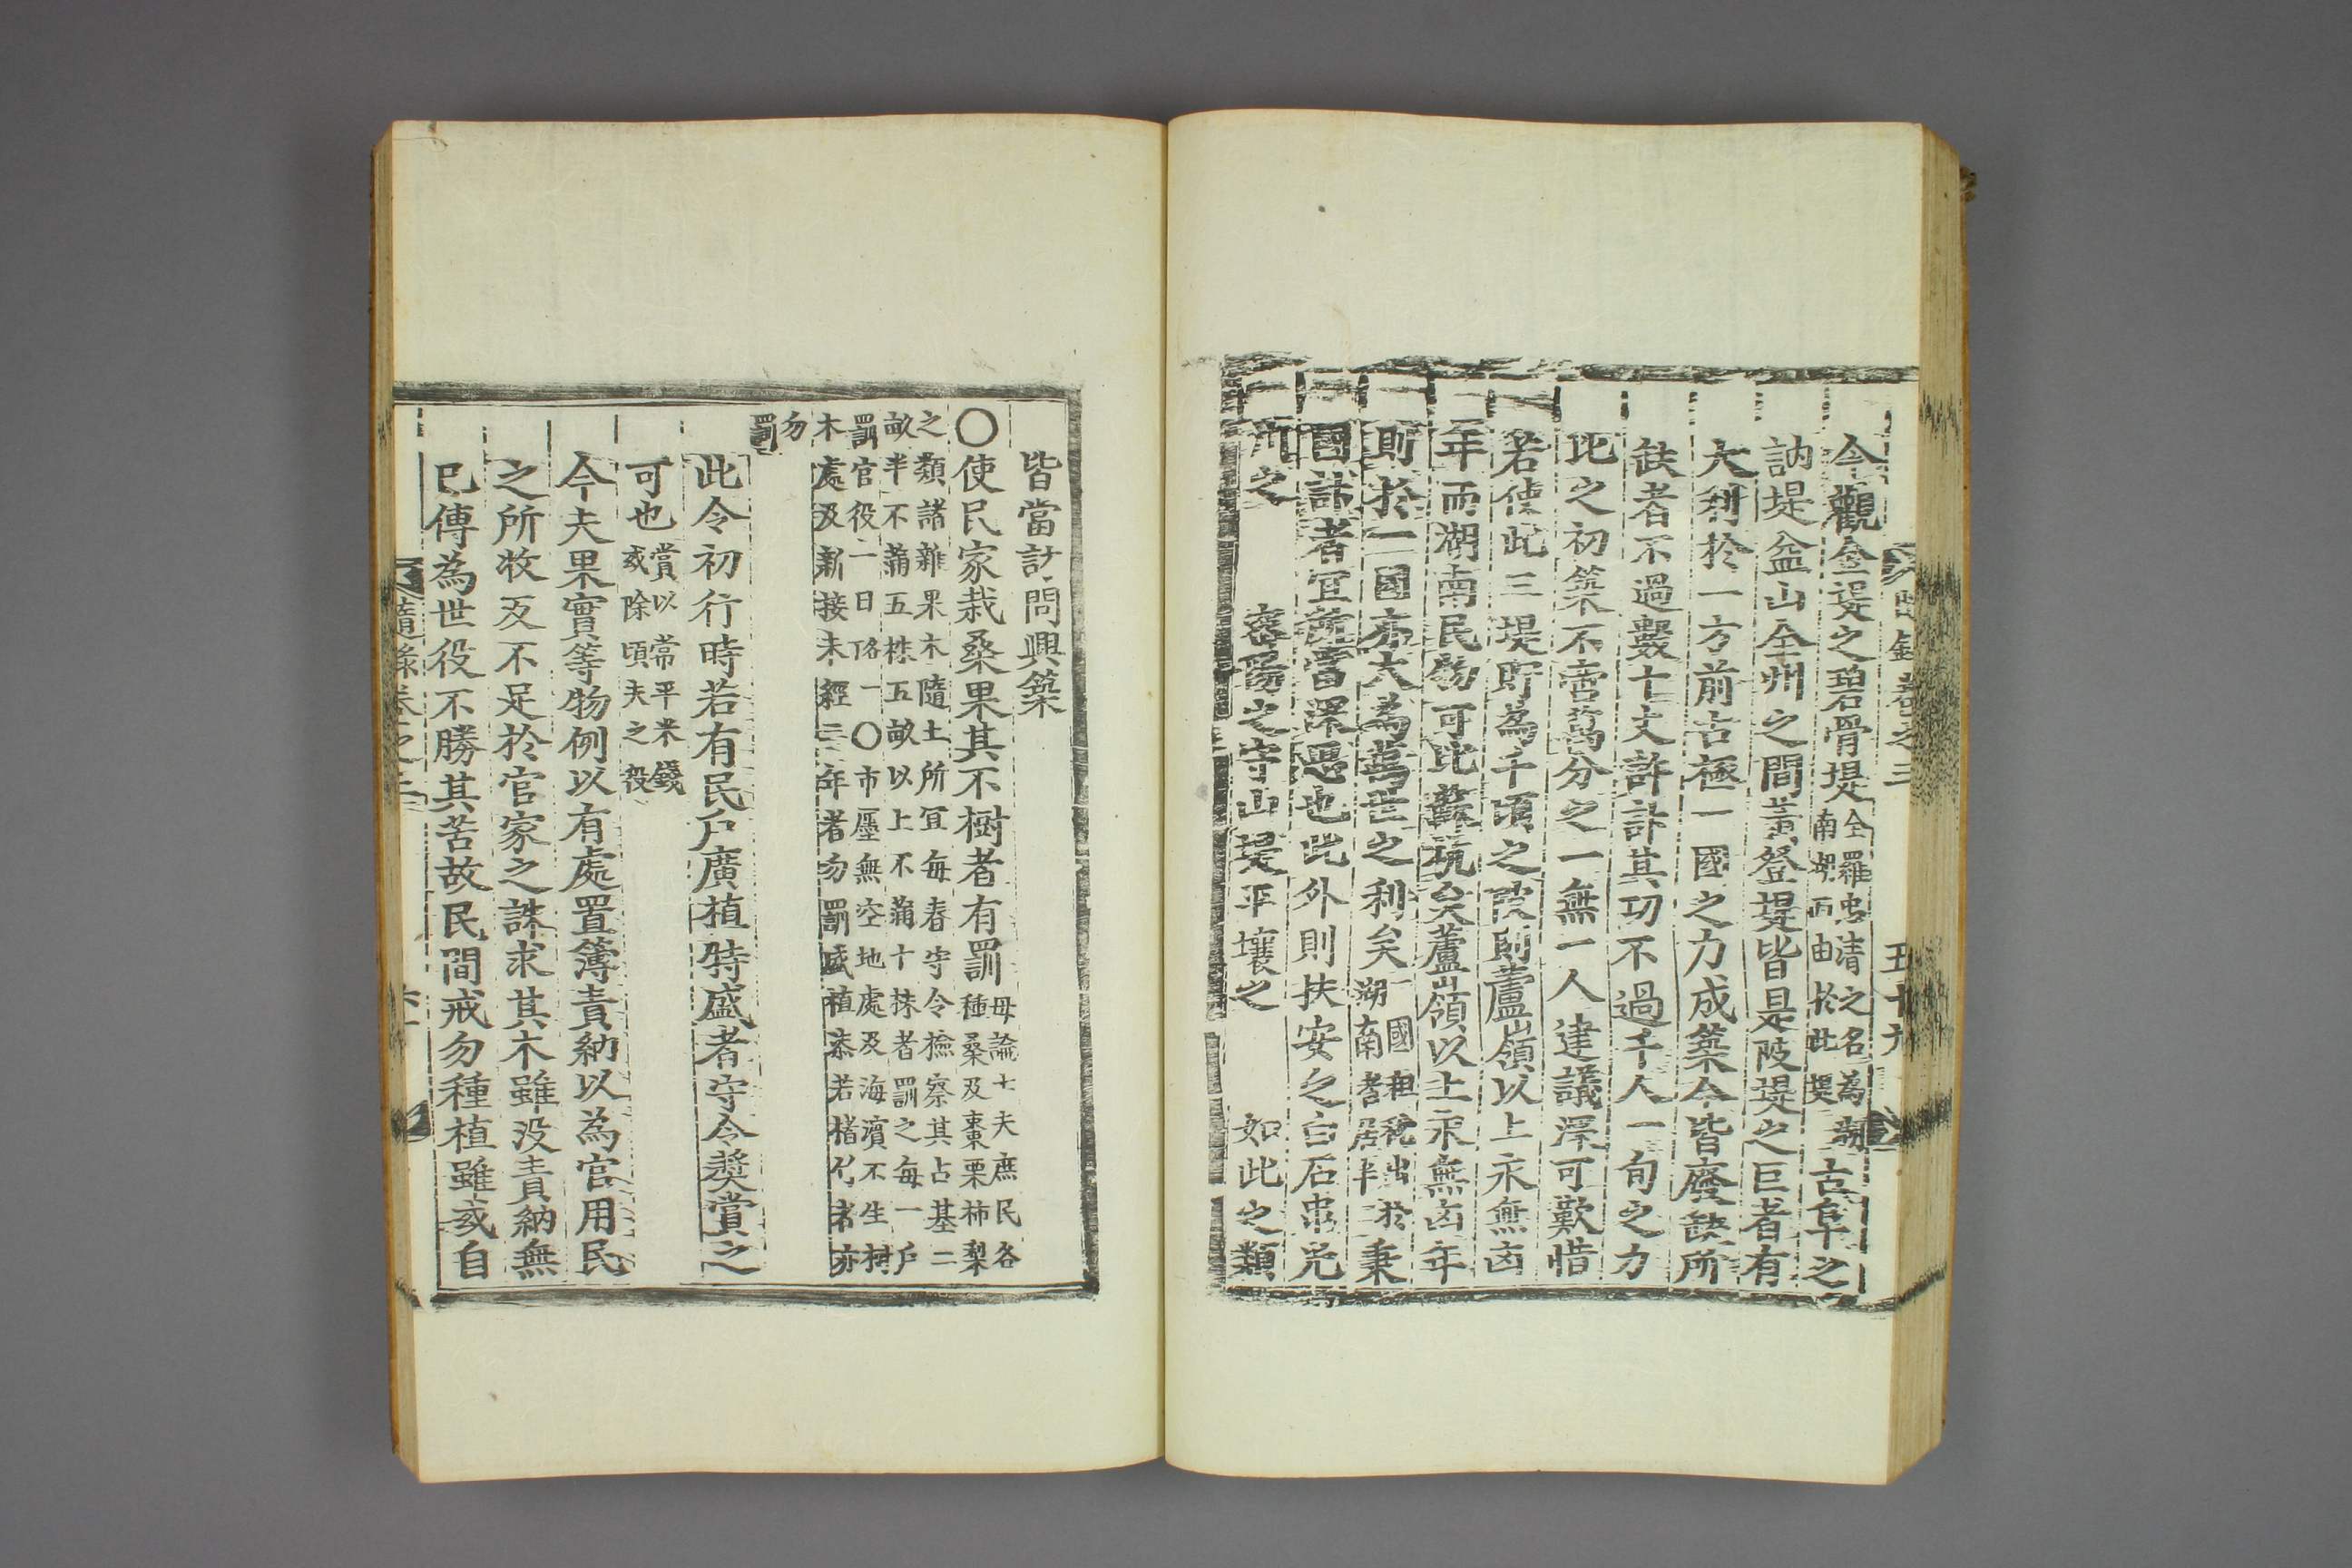 今觀金堤之碧骨堤全羅忠淸之名為湖
南湖西由於此堤古阜之
訥堤益山全州之間黃登堤皆是陂堤之巨者有
大利於一方前古極一國之力成築今皆廢缺所
缺者不過數十丈許計其功不過千人一旬之力
比之初築不啻萬分之一無一人建議深可歎惜
若使此三堤貯為千頃之陂則蘆嶺以上永無凶
年而湖南民物可比蘇杭矣蘆嶺以上永無凶年
則於一國亦大為萬世之利矣一國租稅出於
湖南者居半秉
國計者宜
深思也此外則扶安之
之
之寺山堤平壤之
如此之類
五十九
皆當訪問興築
〇使民家栽桑果其不樹者有罰毋論士夫庶民各
種桑及棗栗柿梨
之類諸雜果木隨土所宜每春守令檢察其占基二
畝半不滿五株五畝以上不滿十株者罰之每一戶
罰官役一日
〇市廛無空地處及海濱不生材
木處及新接未經三年者勿罰盛植漆若楮竹者亦
勿
罰
此令初行時若有民戶廣植特盛者守令奬賞之
可也賞以常平米錢
或除頃夫之役
今夫果實等物例以有處置簿責納以為官用民
之所收反不足於官家之誅求其木雖沒責納無
已傳為世役不勝其苦故民間戒勿種植雖或自
隨錄卷之三